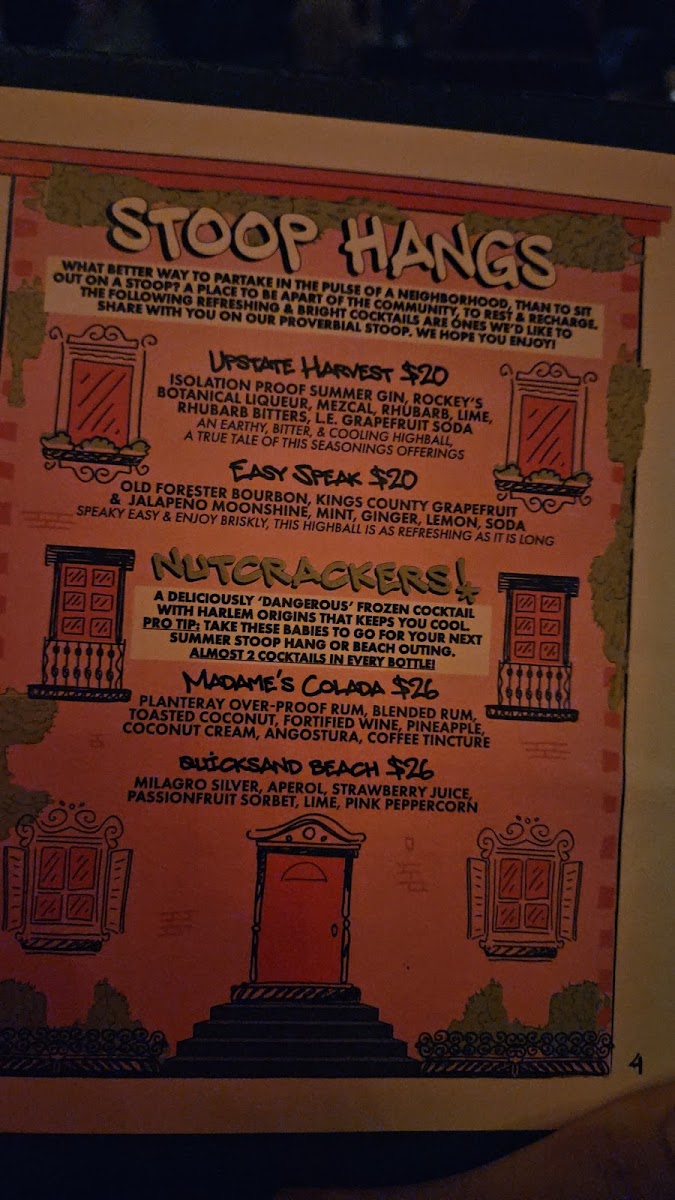 STOOP HANGS
WHAT BETTER WAY TO PARTAKE IN THE PULSE OF A NEIGHBORHOOD, THAN TO SIT
OUT ON A STOOP? A PLACE TO BE APART OF THE COMMUNITY, TO REST & RECHARGE.
THE FOLLOWING REFRESHING & BRIGHT COCKTAILS ARE ONES WE'D LIKE TO
SHARE WITH YOU ON OUR PROVERBIAL STOOP. WE HOPE YOU ENJOY!
UPSTATE HARVEST $20
ISOLATION PROOF SUMMER GIN, ROCKEY'S
BOTANICAL LIQUEUR, MEZCAL, RHUBARB, LIME,
RHUBARB BITTERS, L.E. GRAPEFRUIT SODA
AN EARTHY, BITTER, & COOLING HIGHBALL,
A TRUE TALE OF THIS SEASONINGS OFFERINGS
EASY SPEAK $20
OLD FORESTER BOURBON, KINGS COUNTY GRAPEFRUIT
& JALAPEÑO MOONSHINE, MINT, GINGER, LEMON, SODA
SPEAKY EASY & ENJOY BRISKLY, THIS HIGHBALL IS AS REFRESHING AS IT IS LONG
NUTCRACKERS!
A DELICIOUSLY 'DANGEROUS' FROZEN COCKTAIL
WITH HARLEM ORIGINS THAT KEEPS YOU COOL.
PRO TIP: TAKE THESE BABIES TO GO FOR YOUR NEXT
SUMMER STOOP HANG OR BEACH OUTING.
ALMOST 2 COCKTAILS IN EVERY BOTTLE!
MADAME'S COLADA $26
PLANTERAY OVER-PROOF RUM, BLENDED RUM,
TOASTED COCONUT, FORTIFIED WINE, PINEAPPLE,
COCONUT CREAM, ANGOSTURA, COFFEE TINCTURE
QUICKSAND BEACH $26
MILAGRO SILVER, APEROL, STRAWBERRY JUICE,
PASSIONFRUIT SORBET, LIME, PINK PEPPERCORN
4